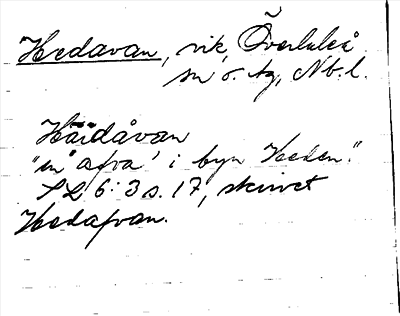 Hedavan, vik, Överluleå
sn o. tg, Nb. l.
Häidåvan
"en 'afva' i byn Heden."
SL 6:3 s. 17, skrivet
Hedafvan.